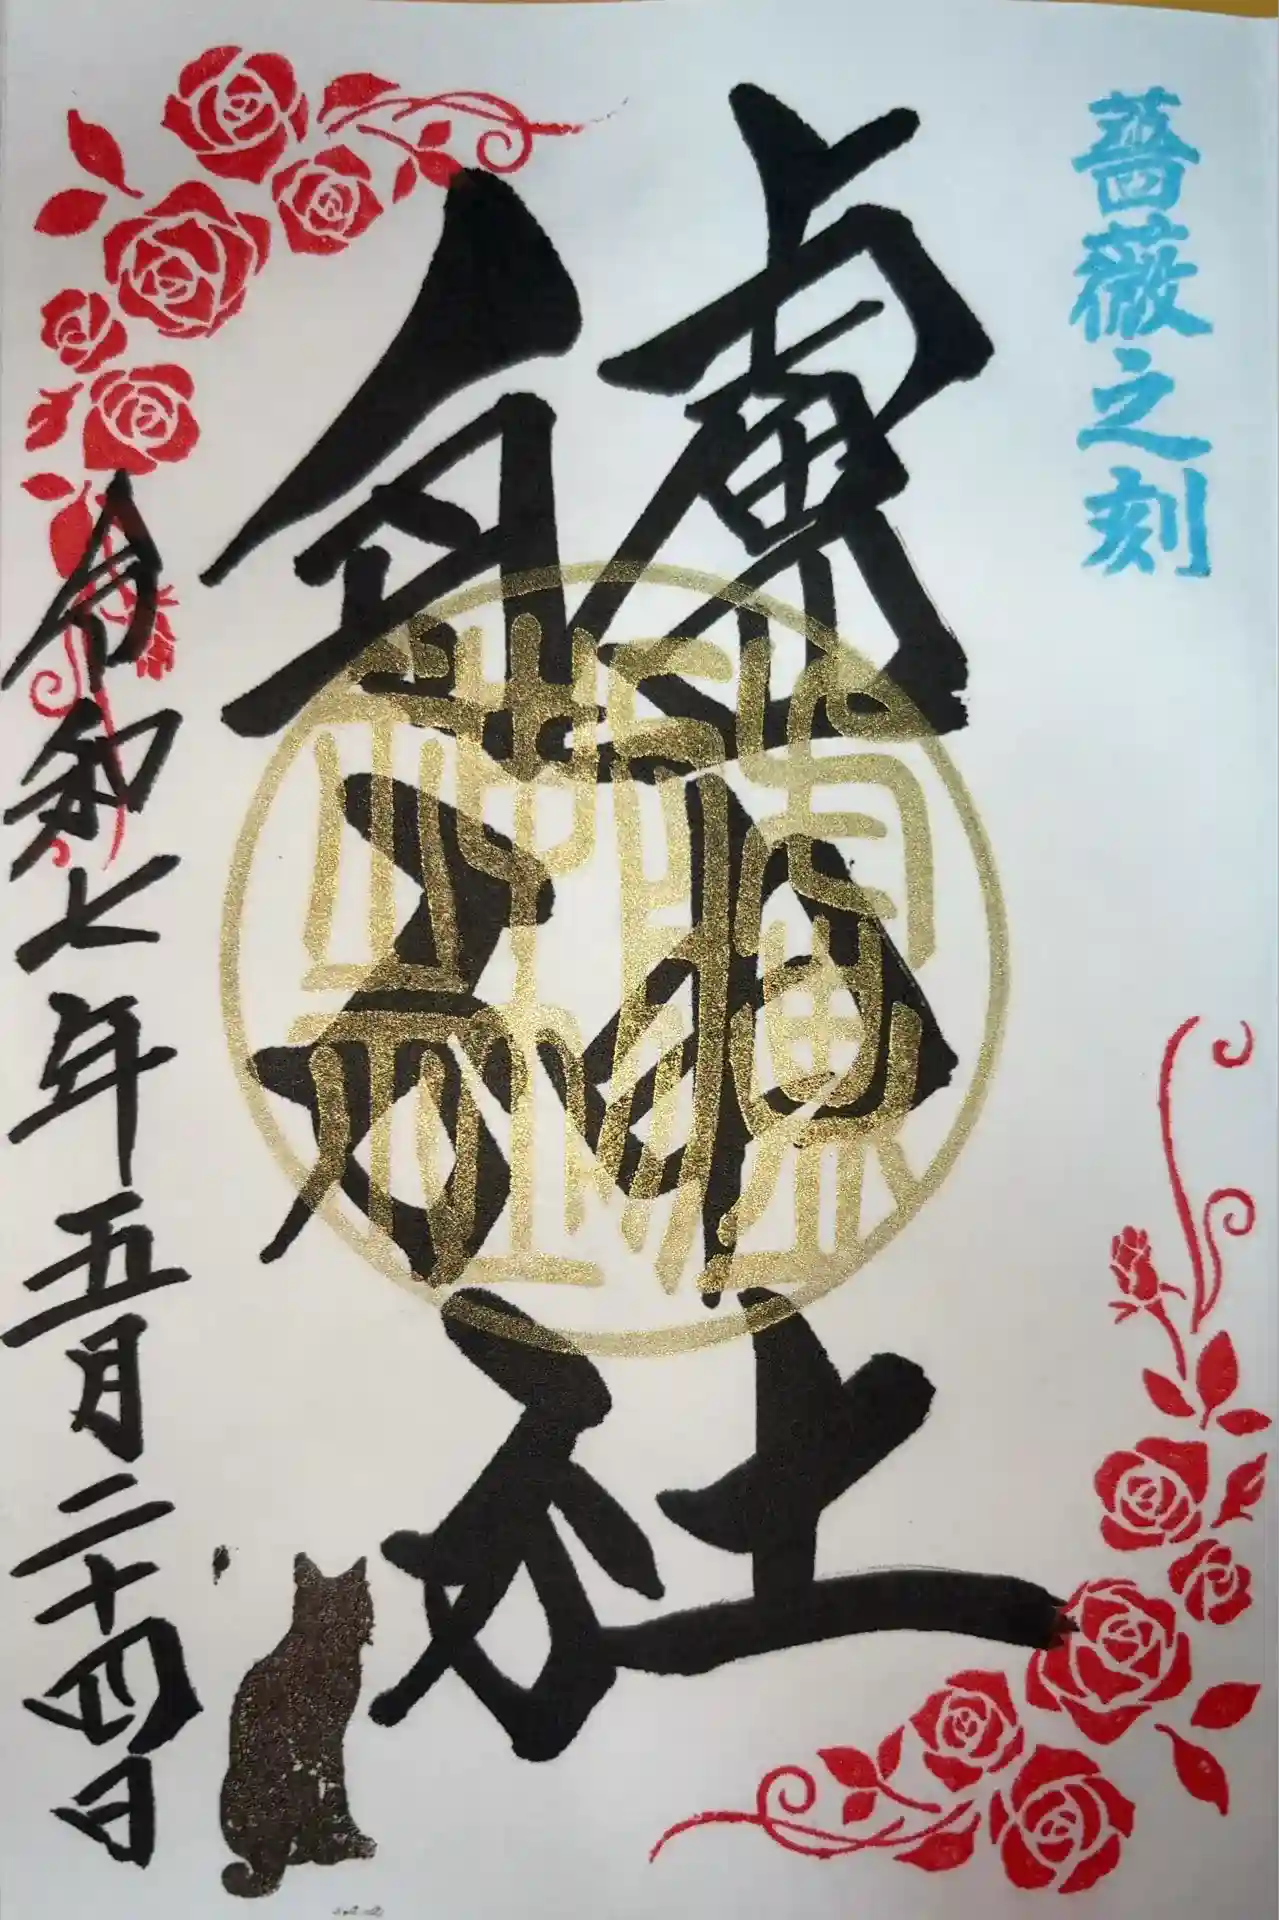 薔薇之刻
鱸神社
令和七年五月二十四日